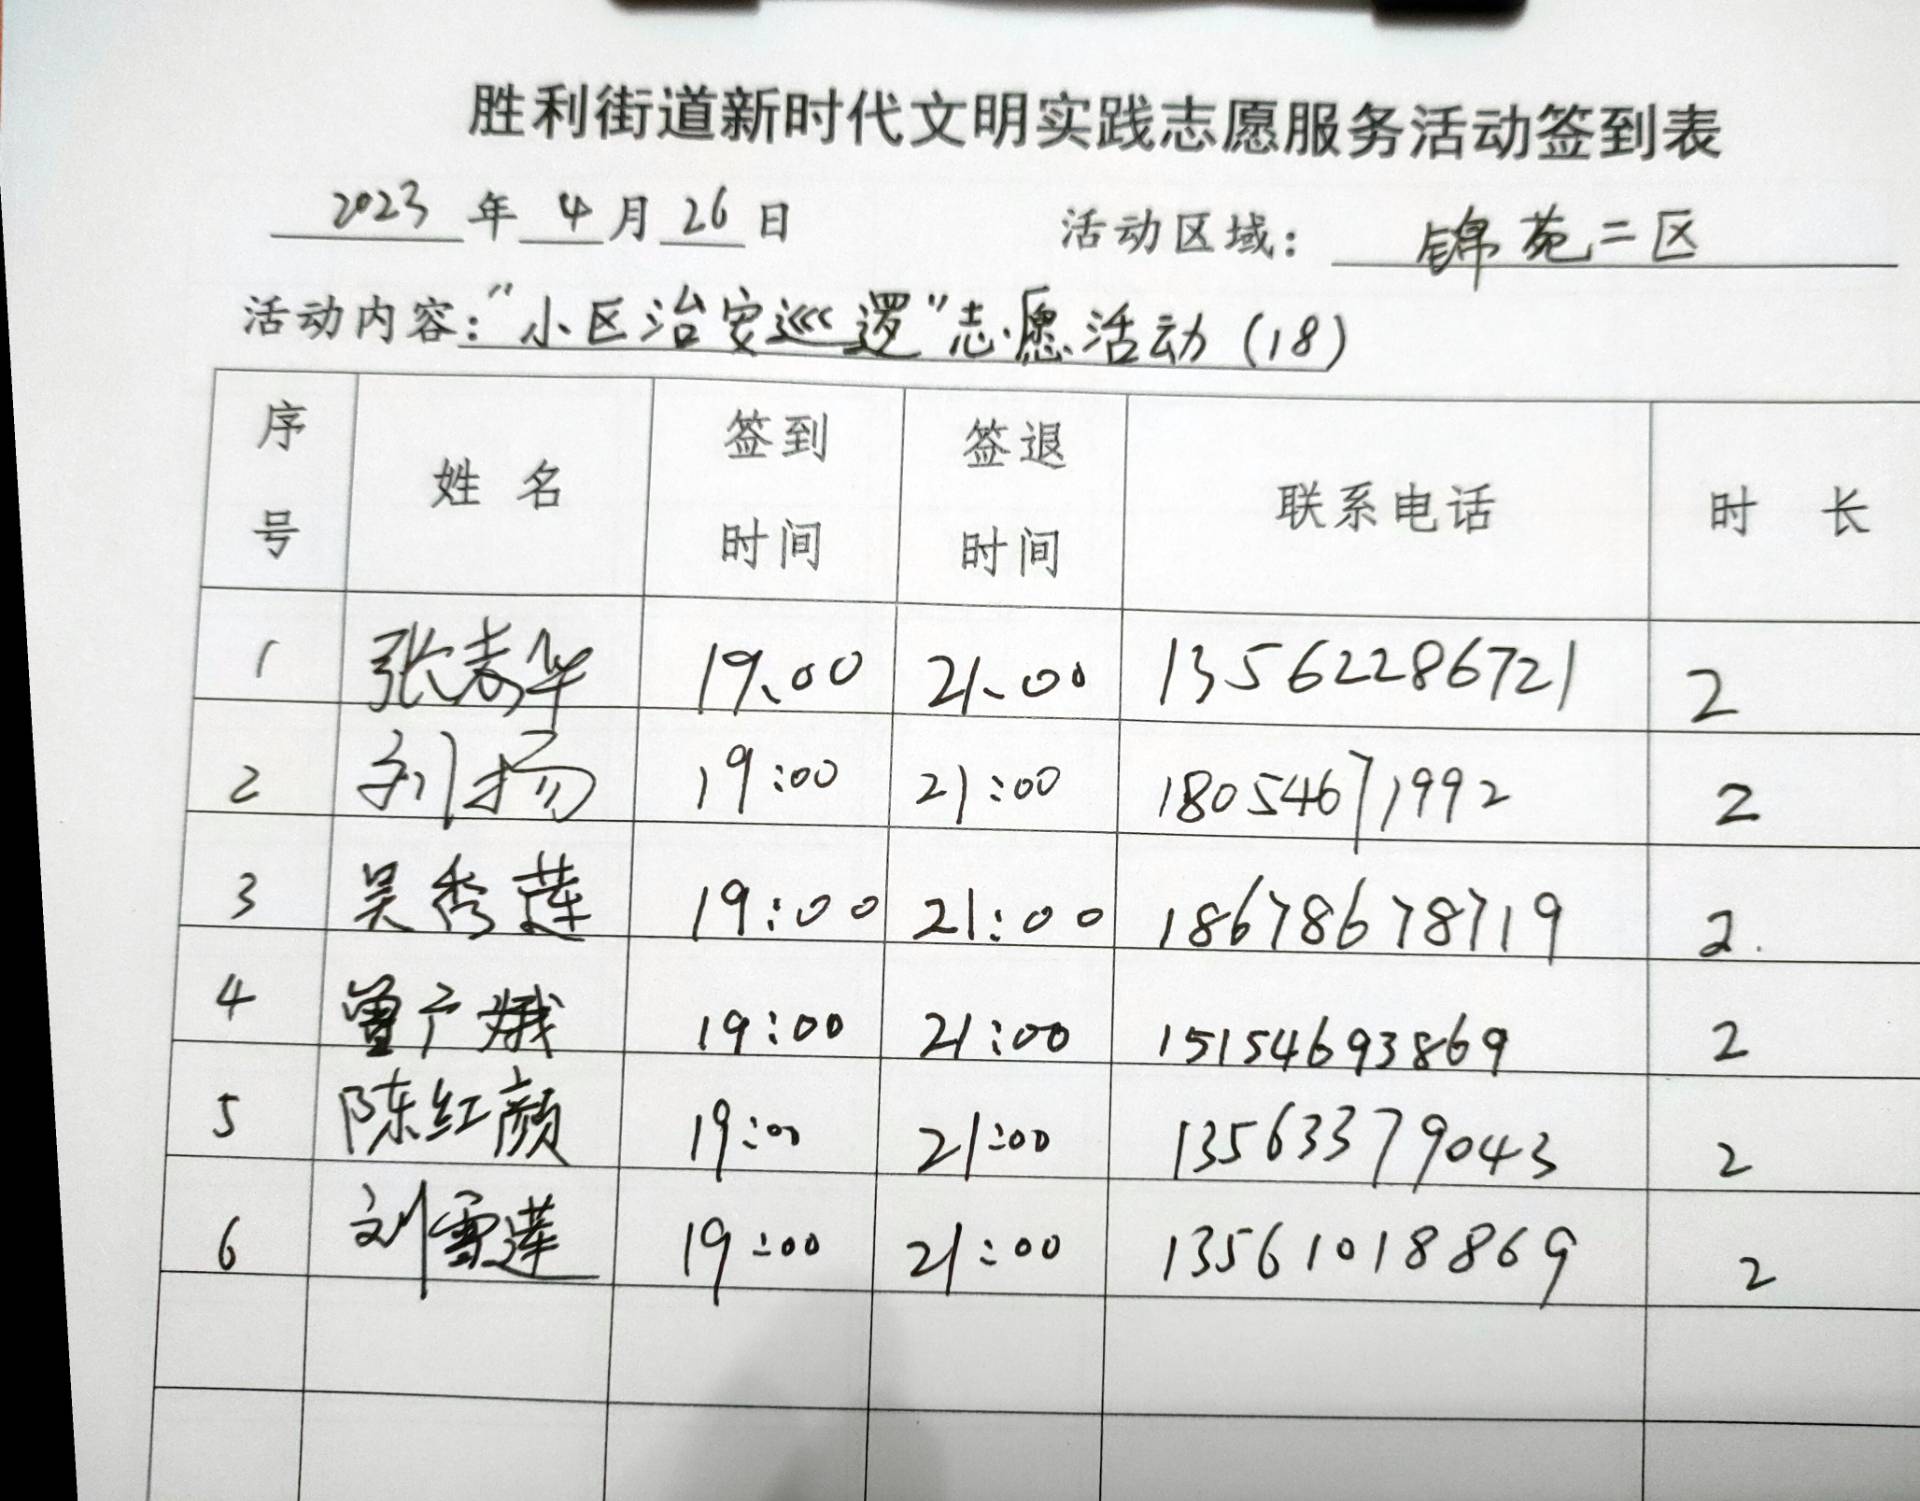 胜利街道新时代文明实践志愿服务活动签到表
2023 年 4 月 26 日 活动区域: 锦苑二区
活动内容:"小区治安巡逻"志愿活动(18)
序号 姓名 签到时间 签退时间 联系电话 时长
1 张志华 19:00 21:00 13562286721 2
2 刘扬 19:00 21:00 18054671992 2
3 吴秀莲 19:00 21:00 18678678719 2.
4 曾广娥 19:00 21:00 15154693869 2
5 陈红颜 19:00 21:00 13563379043 2
6 刘雪莲 19:00 21:00 13561018869 2